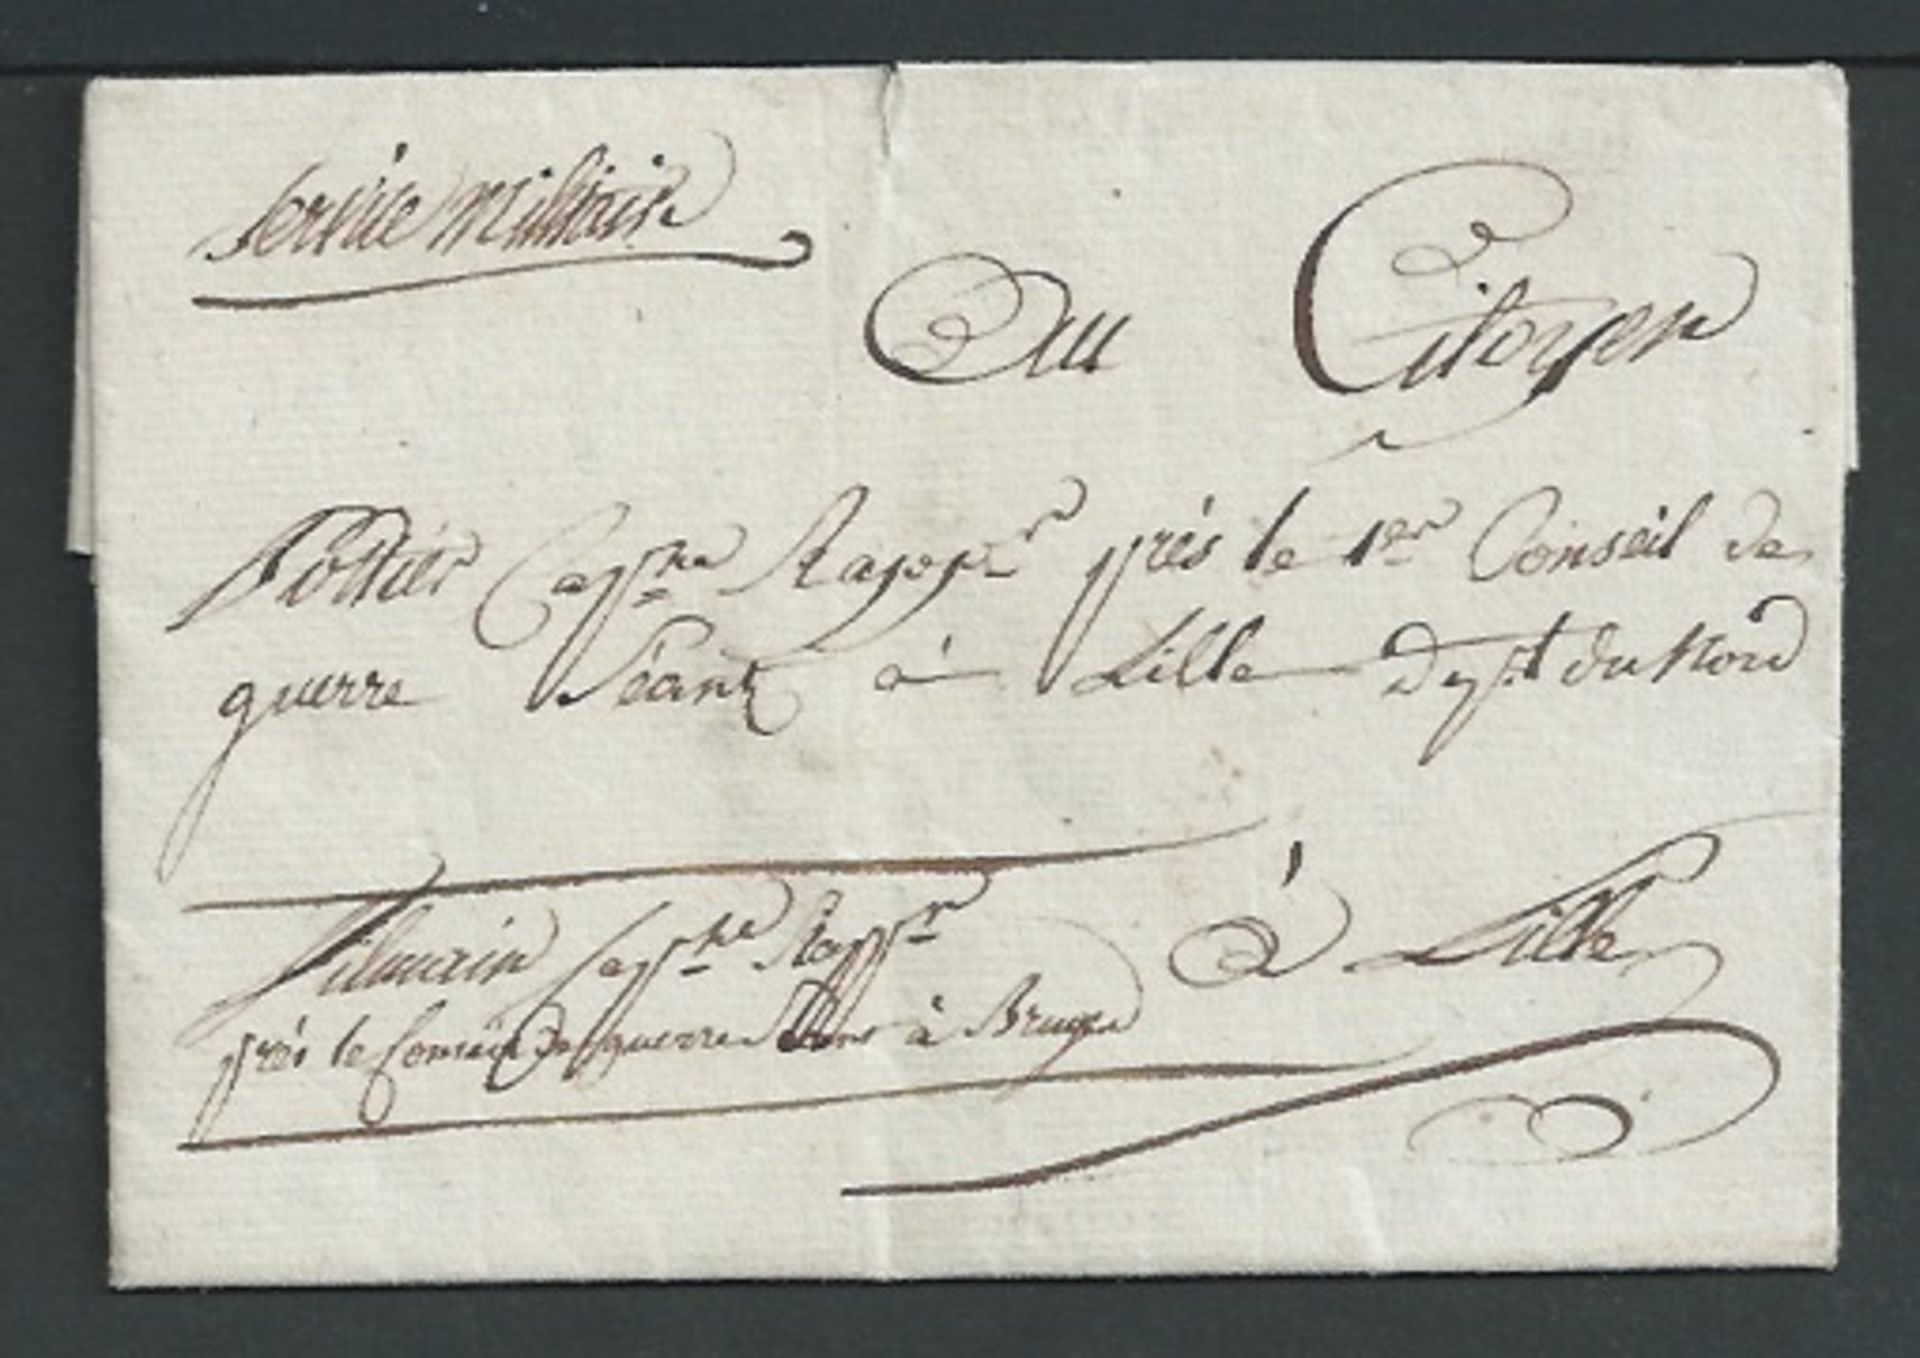 service Militaire
Au Citoyen
Pottier Capne Rappr près le 1er Conseil de
guerre Séant à Lille Dept du Nord
à Lille
Vilmain Capne Rappr
près le Conseil De guerre Séant à Bruges